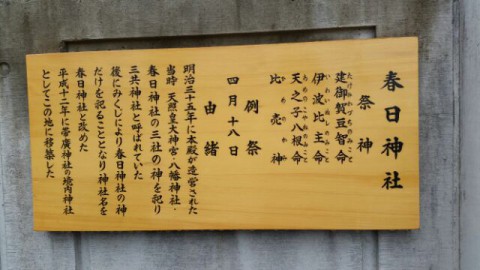 春日神社
祭神
建御賀豆智命
伊波比主命
天之子八根命
比売神
例祭
四月十八日
由緒
明治三十五年に本殿が造営された
当時 天照皇大神宮・八幡神社・
春日神社の三社の神を祀り
三共神社と呼ばれていた
後にみくじにより春日神社の神
だけを祀ることとなり神社名を
春日神社と改めた
平成十二年に帯廣神社の境内神社
としてこの地に移築した